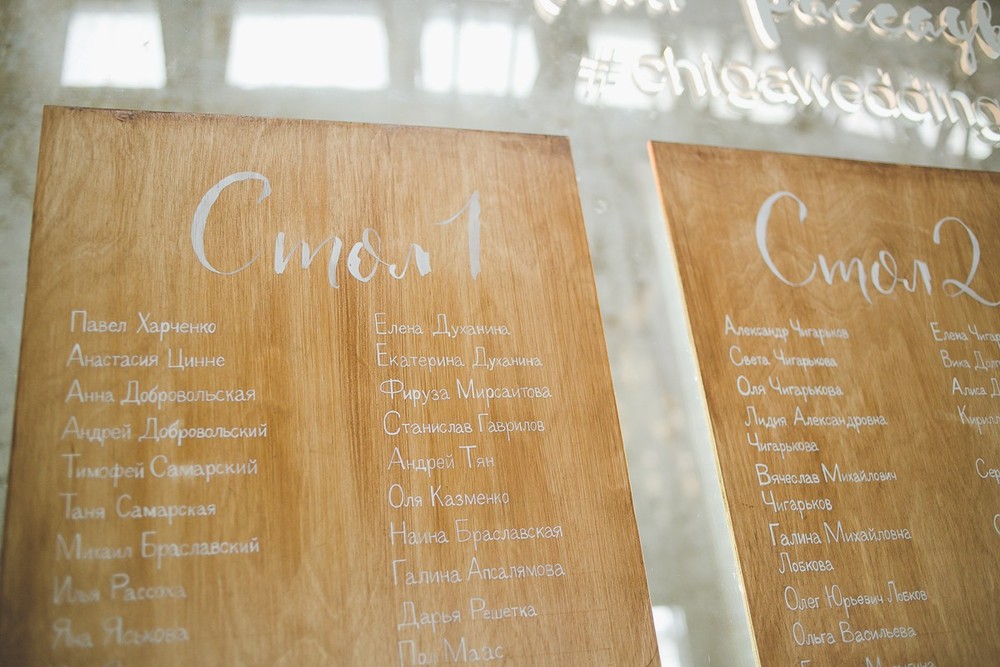 #chigawedding
Стол 1
Павел Харченко
Анастасия Цинне
Анна Добровольская
Андрей Добровольский
Тимофей Самарский
Таня Самарская
Михаил Браславский
Илья Рассоха
Яна Яськова
Елена Духанина
Екатерина Духанина
Фируза Мирсаитова
Станислав Гаврилов
Андрей Тян
Оля Казменко
Наина Браславская
Галина Апсалямова
Дарья Решетка
Пол Маас
Стол 2
Александр Чигарьков
Света Чигарькова
Оля Чигарькова
Лидия Александровна
Чигарькова
Вячеслав Михайлович
Чигарьков
Галина Михайловна
Лобкова
Олег Юрьевич Лобков
Ольга Васильева
Елена
Вика
Алиса